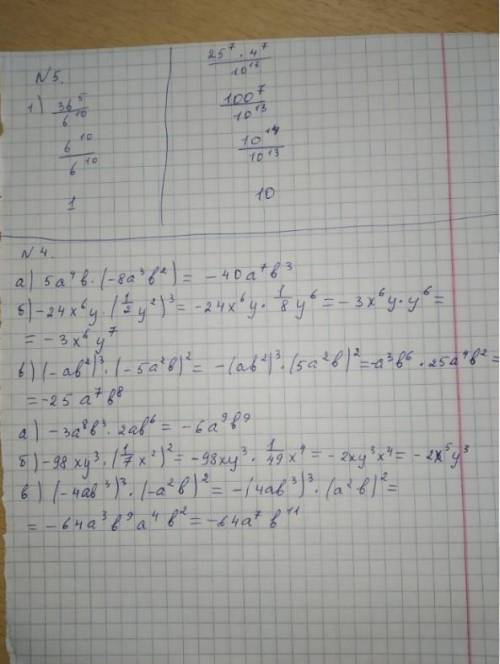 N5.
1) 36⁵/6¹⁰
6¹⁰/6¹⁰
1
25⁷ · 4⁷/10¹³
100⁷/10¹³
10¹⁴/10¹³
10
N4.
а) 5a⁴b · (-8a³b²) = -40a⁷b³
б) -24x⁶y · (1/2 y²)³ = -24x⁶y · 1/8 y⁶ = -3x⁶y · y⁶ =
= -3x⁶y⁷
в) (-ab²)³ · (-5a²b)² = -(ab²)³ · (5a²b)² = -a³b⁶ · 25a⁴b² =
= -25a⁷b⁸
а) -3a⁸b³ · 2ab⁶ = -6a⁹b⁹
б) -98xy³ · (1/7 x²)² = -98xy³ · 1/49 x⁴ = -2xy³x⁴ = -2x⁵y³
в) (-4ab³)³ · (-a²b)² = -(4ab³)³ · (a²b)² =
= -64a³b⁹a⁴b² = -64a⁷b¹¹